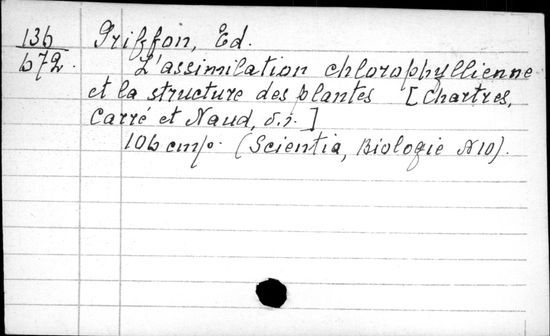 136 Griffon, Ed.
672. L'assimilation chlorophyllienne
et la structure des plantes [Chartres,
Carré et Naud, s.j.]
106 стр. (Scientia, Biologie №10).